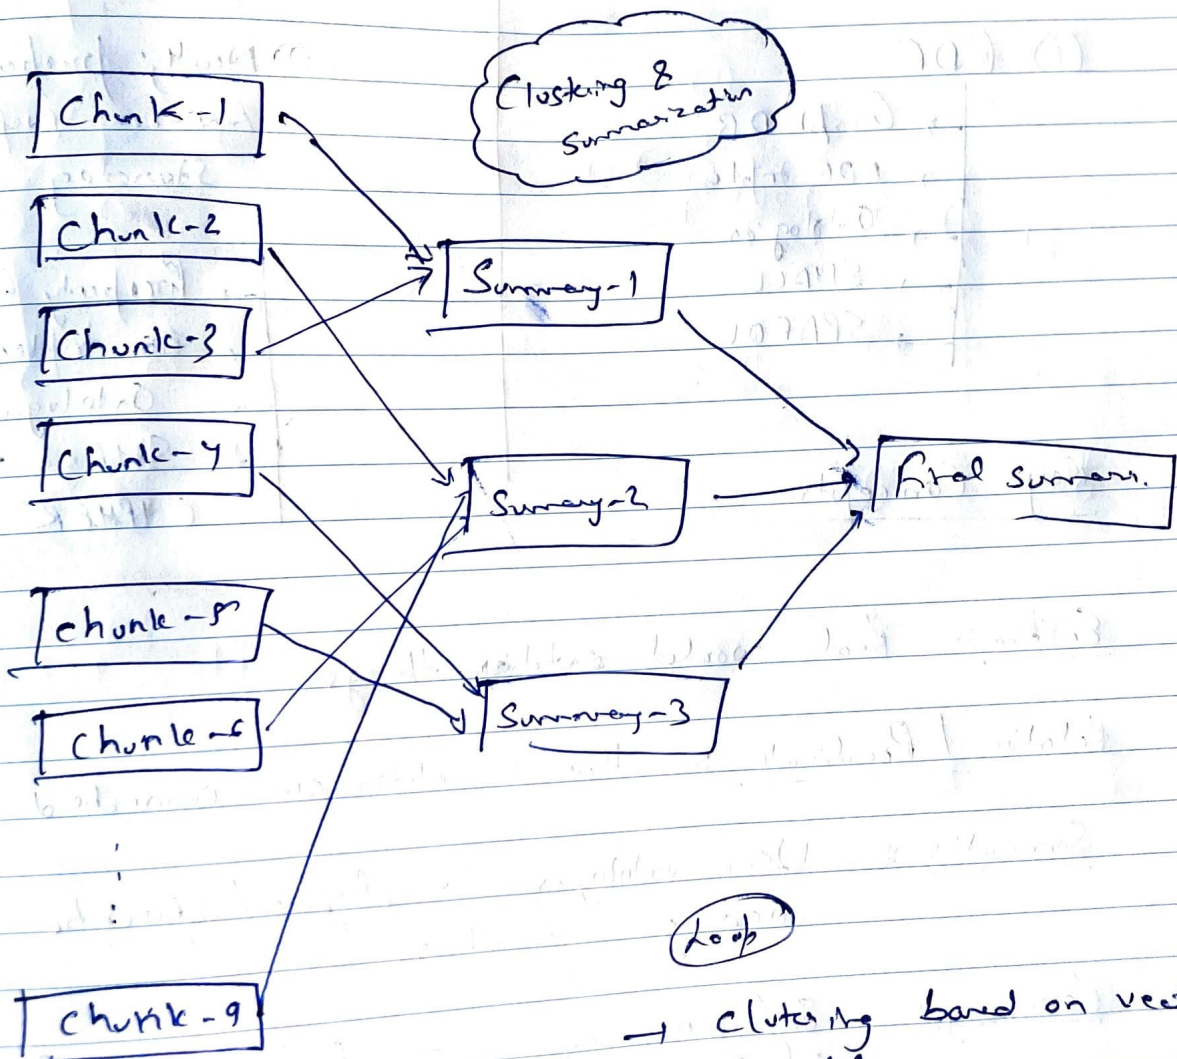 Clustering &
summarization
Chunk-1
Chunk-2
Chunk-3
Chunk-4
Chunk-5
Chunk-6
Chunk-9
Summary-1
Summary-2
Summary-3
final summary.
Loop
→ Clutering based on vec